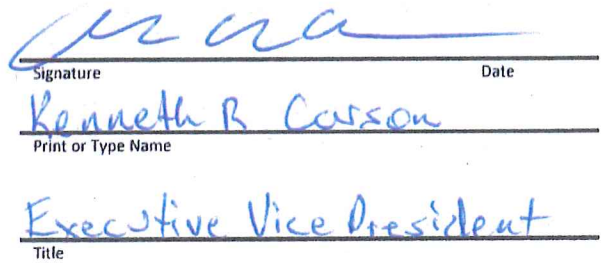 Signature Date
Kenneth R Carson
Print or Type Name
Executive Vice President
Title